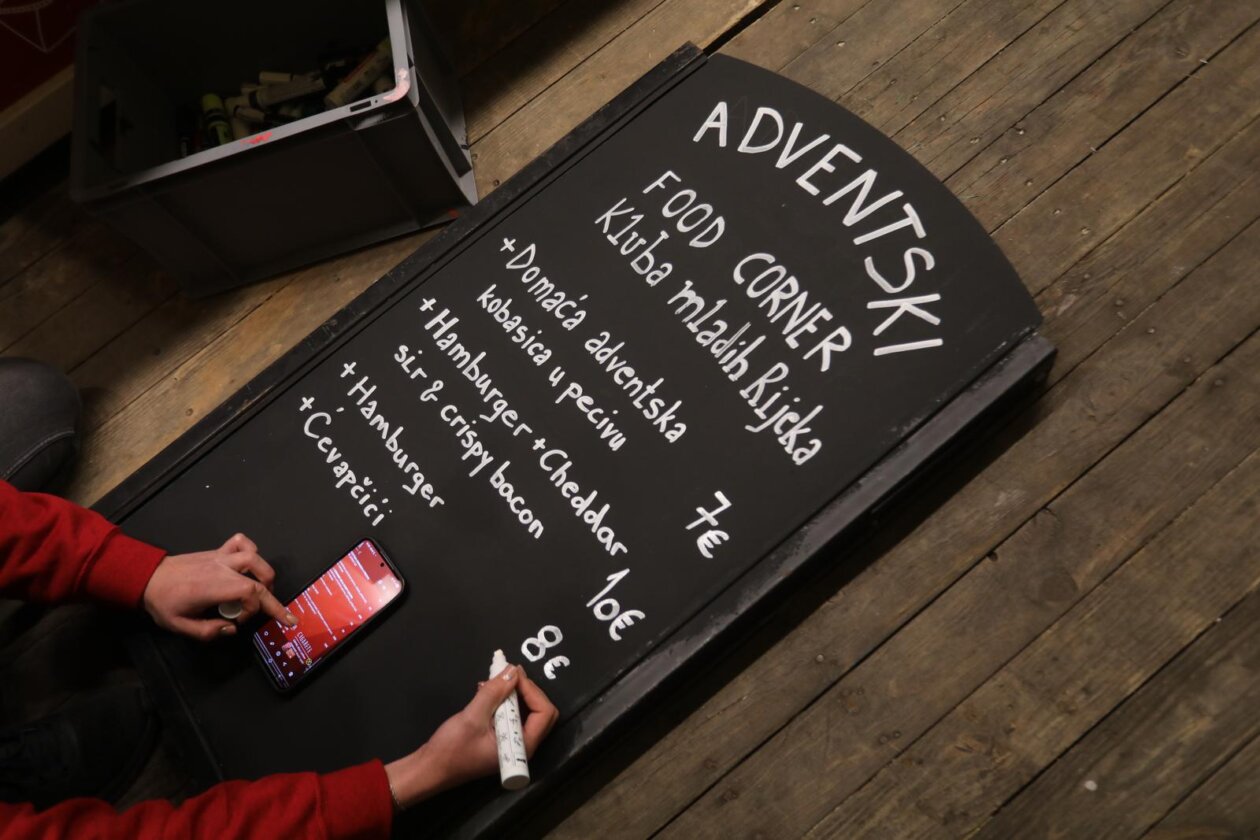 ADVENTSKI
FOOD CORNER
Kluba mladih Rijeka
+Domaća adventska
kobasica u pecivu 7€
+Hamburger +Cheddar
sir & crispy bacon 10€
+Hamburger 8€
+Ćevapčići